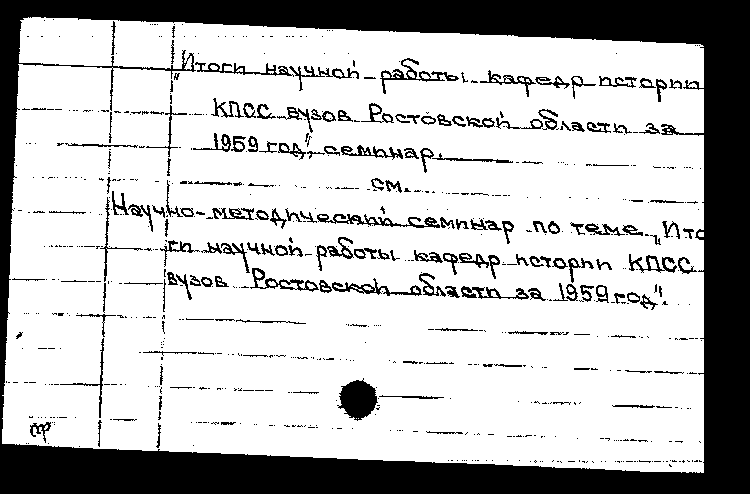 „Итоги научной работы кафедр истории
КПСС вузов Ростовской области за
1959 год", семинар.
см.
Научно-методический семинар по теме „Ито
ги научной работы кафедр истории КПСС
вузов Ростовской области за 1959 год".